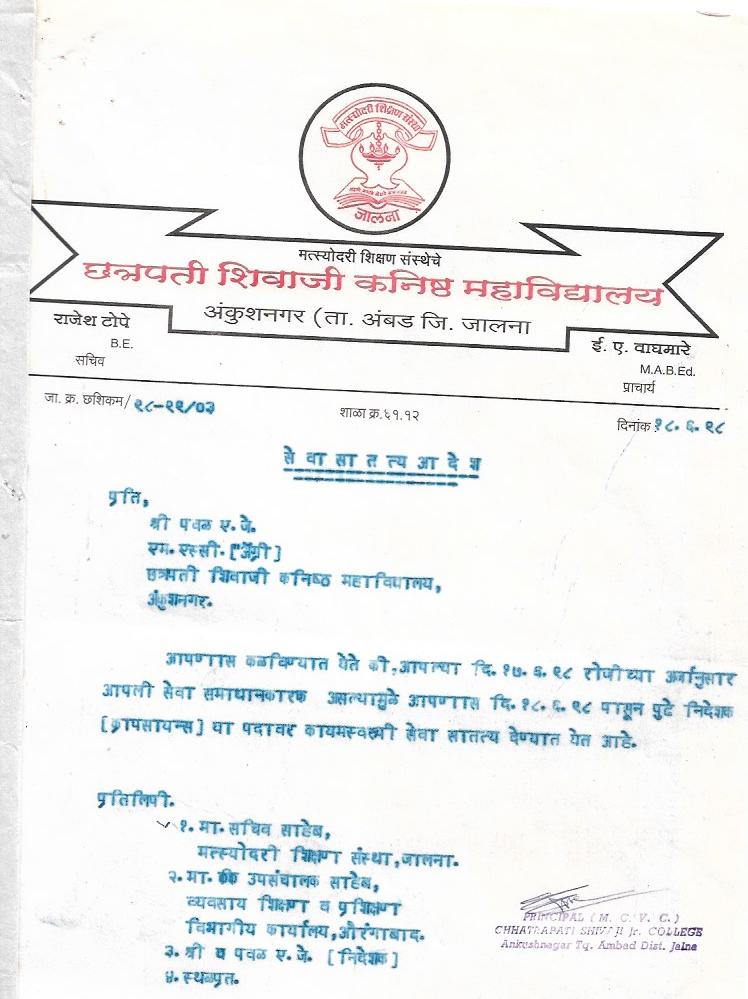 मत्स्योदरी शिक्षण संस्था
जालना
मत्स्योदरी शिक्षण संस्थेचे
छत्रपती शिवाजी कनिष्ठ महाविद्यालय
अंकुशनगर (ता. अंबड जि. जालना
राजेश टोपे
B.E.
सचिव
ई. ए. वाघमारे
M.A.B.Ed.
प्राचार्य
जा. क्र. छशिकम/ ९८-९९/०३
शाळा क्र.६१.१२
दिनांक १८.६.९८
से वा सा त त्य आ दे श
प्रति,
श्री पवळ ए.जे.
एम.एस्सी.[ॲग्री]
छत्रपती शिवाजी कनिष्ठ महाविद्यालय,
अंकुशनगर.
आपणास कळविण्यात येते की,आपल्या दि.१७.६.९८ रोजीच्या अर्जानुसार
आपली सेवा समाधानकारक असल्यामुळे आपणास दि.१८.६.९८ पासून पुढे निदेशक
[क्रापसायन्स] या पदावर कायमस्वरूपी सेवा सातत्य देण्यात येत आहे.
प्रतिलिपी.
१. मा.सचिव साहेब,
मत्स्योदरी शिक्षण संस्था,जालना.
२.मा. उपसंचालक साहेब,
व्यवसाय शिक्षण व प्रशिक्षण
विभागीय कार्यालय,औरंगाबाद.
३.श्री पवळ ए.जे. [निदेशक]
४.स्थळप्रत.
PRINCIPAL (M. C. V. C.)
CHHATRAPATI SHIVAJI Jr. COLLEGE
Ankushnagar Tq. Ambad Dist. Jalna